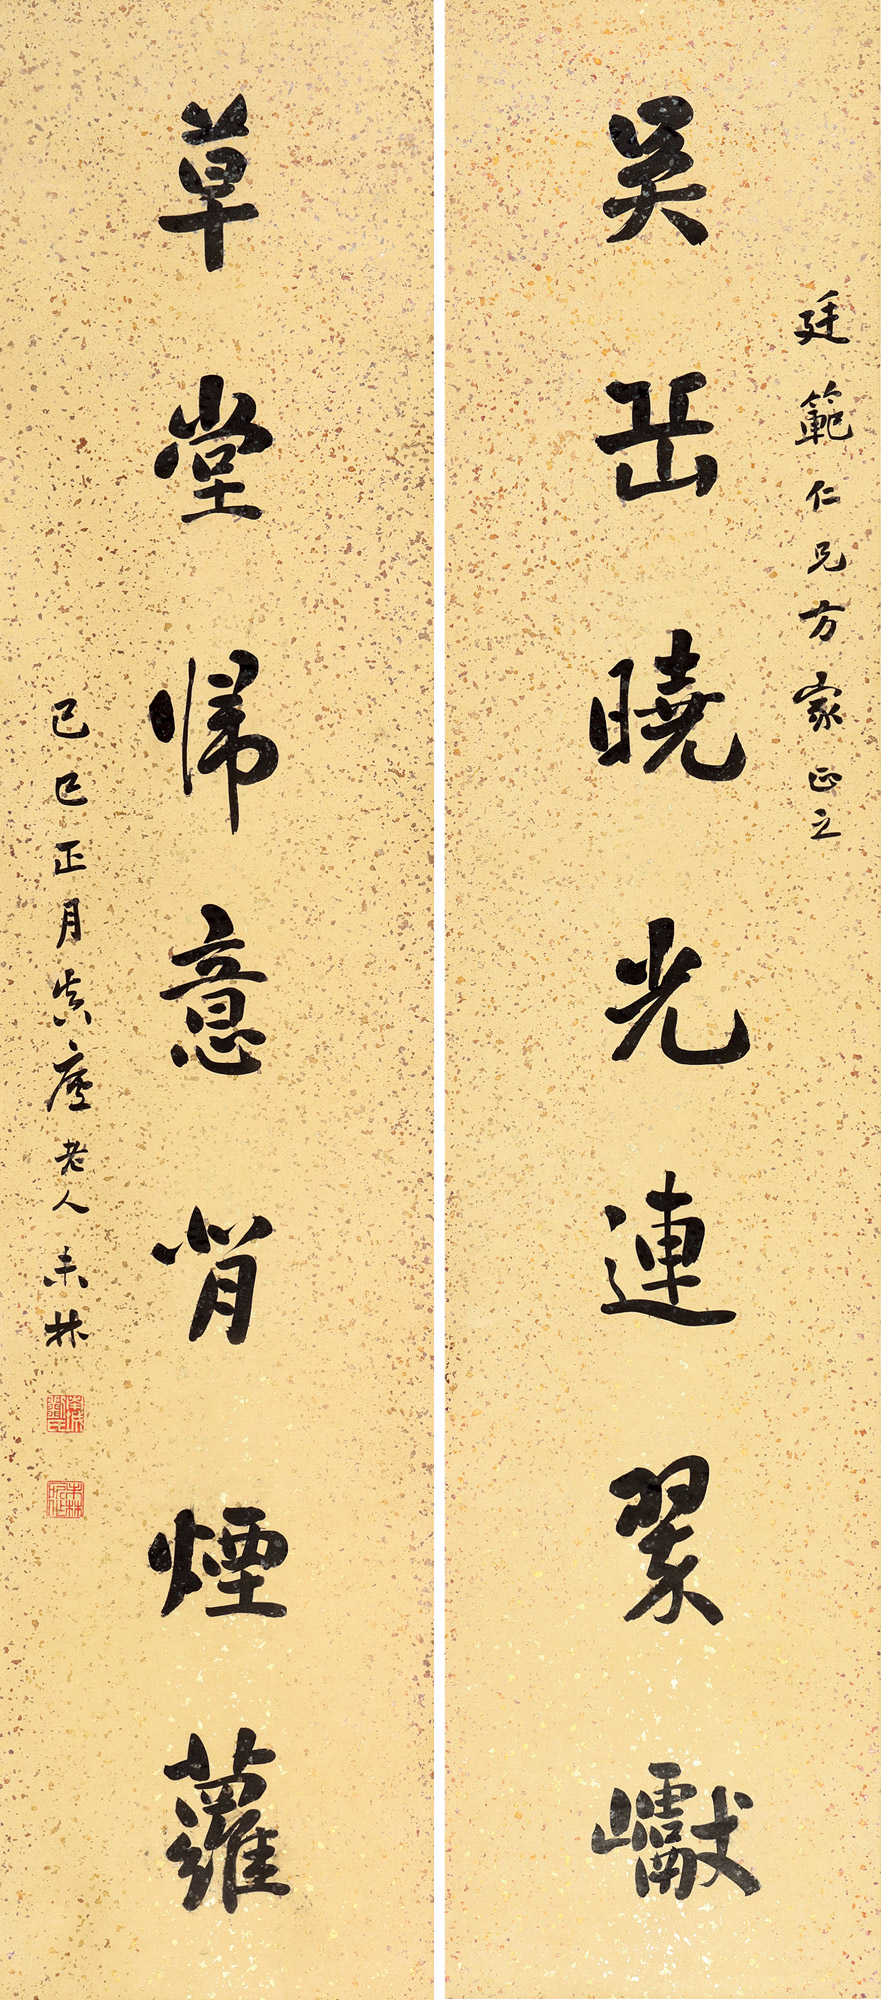 廷範仁兄方家正之
吳岳曉光連翠巘
草堂帰意背煙蘿
己巳正月廬老人林